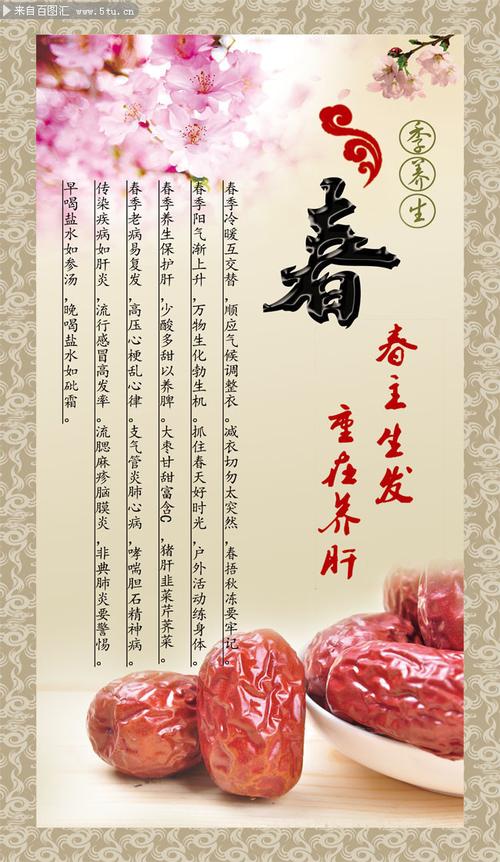 来自百图汇 www.5tu.cn
春
季养生
春主生发
重在养肝
春季冷暖互交替,顺应气候调整衣。减衣切勿太突然,春捂秋冻要牢记。
春季阳气渐上升,万物生化勃生机。抓住春天好时光,户外活动练身体。
春季养生保护肝,少酸多甜以养脾。大枣甘甜富含C,猪肝韭菜芹荠菜。
春季老病易复发,高压心梗乱心律。支气管炎肺心病,哮喘胆石精神病。
传染疾病如肝炎,流行感冒高发率。流腮麻疹脑膜炎,非典肺炎要警惕。
早喝盐水如参汤,晚喝盐水如砒霜。